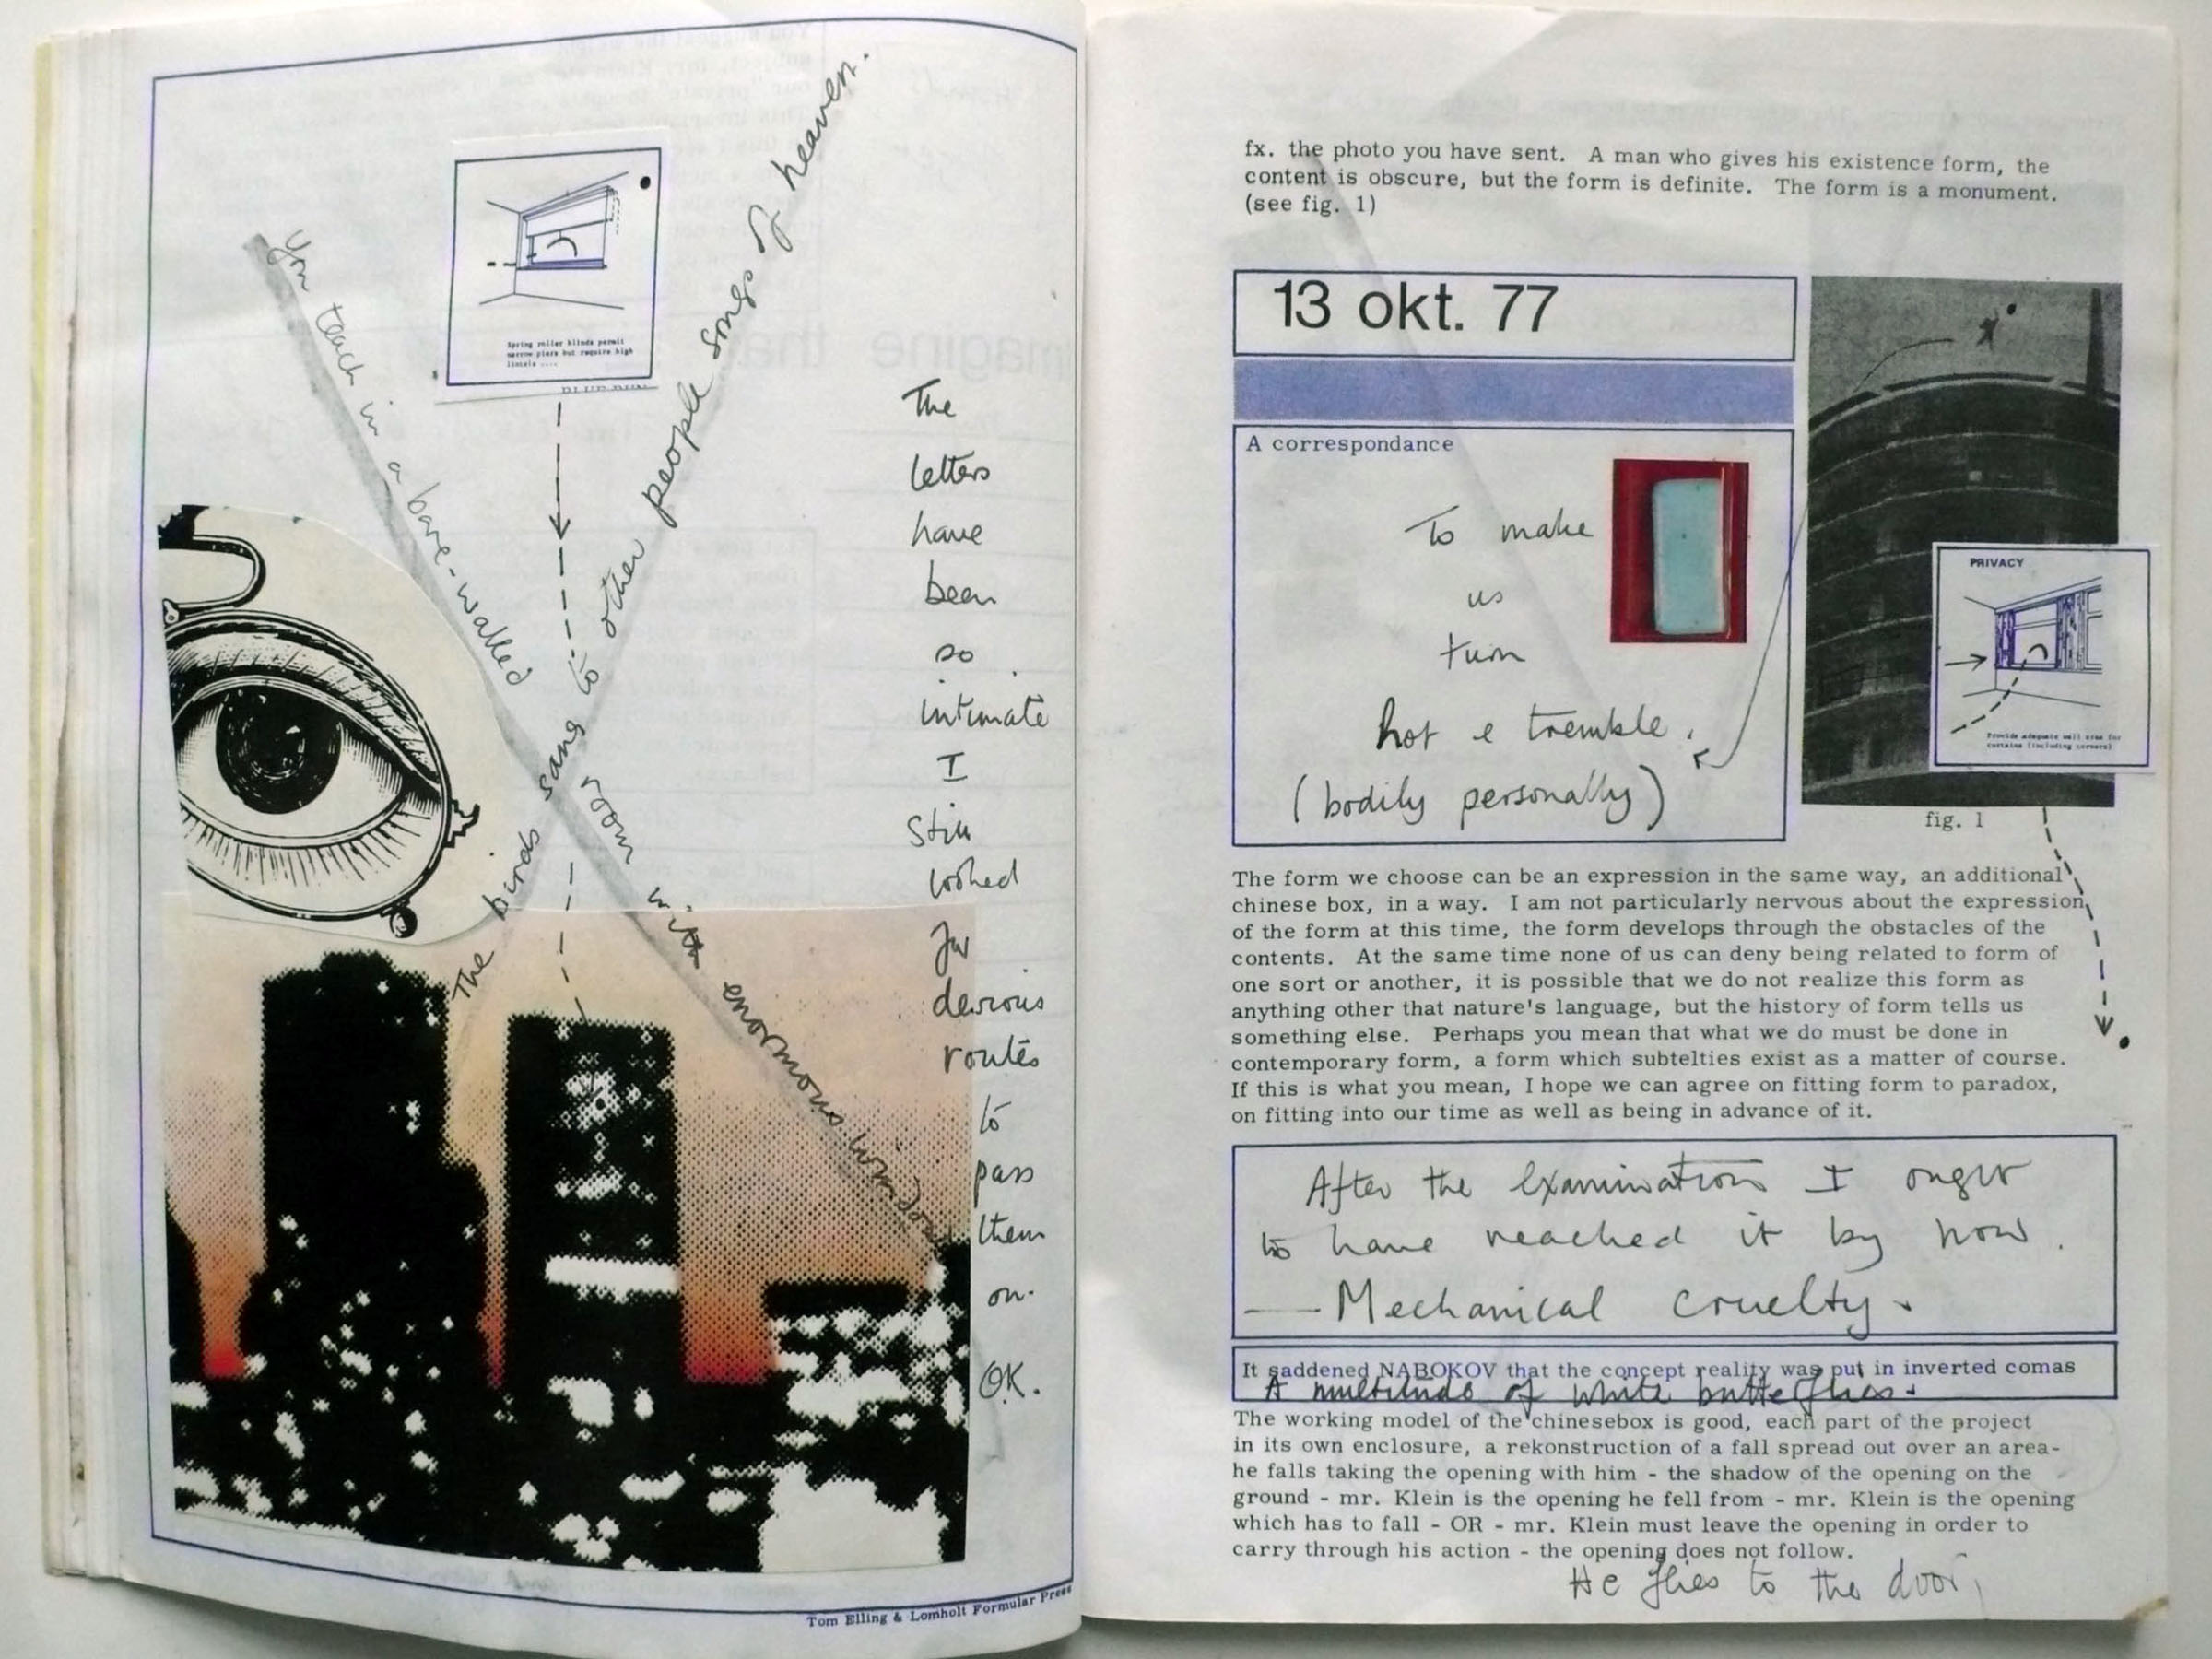 Spring roller blinds permit
narrow piers but require high
lintels ....
You teach in a bare-walled room with enormous windows
The birds sang to other people songs of heaven.
The
letters
have
been
so
intimate
I
still
looked
for
devious
routes
to
pass
them
on.
OK.
Tom Elling & Lomholt Formular Press
fx. the photo you have sent. A man who gives his existence form, the
content is obscure, but the form is definite. The form is a monument.
(see fig. 1)
13 okt. 77
A correspondance
To make
us
turn
hot e tremble.
(bodily personally)
PRIVACY
Provide adequate wall area for
curtains (including corners)
fig. 1
The form we choose can be an expression in the same way, an additional
chinese box, in a way. I am not particularly nervous about the expression
of the form at this time, the form develops through the obstacles of the
contents. At the same time none of us can deny being related to form of
one sort or another, it is possible that we do not realize this form as
anything other that nature's language, but the history of form tells us
something else. Perhaps you mean that what we do must be done in
contemporary form, a form which subtelties exist as a matter of course.
If this is what you mean, I hope we can agree on fitting form to paradox,
on fitting into our time as well as being in advance of it.
After the examination I ought
to have reached it by now.
— Mechanical cruelty.
It saddened NABOKOV that the concept reality was put in inverted comas
A multitude of white butterflies.
The working model of the chinesebox is good, each part of the project
in its own enclosure, a rekonstruction of a fall spread out over an area-
he falls taking the opening with him - the shadow of the opening on the
ground - mr. Klein is the opening he fell from - mr. Klein is the opening
which has to fall - OR - mr. Klein must leave the opening in order to
carry through his action - the opening does not follow.
He flies to the door,